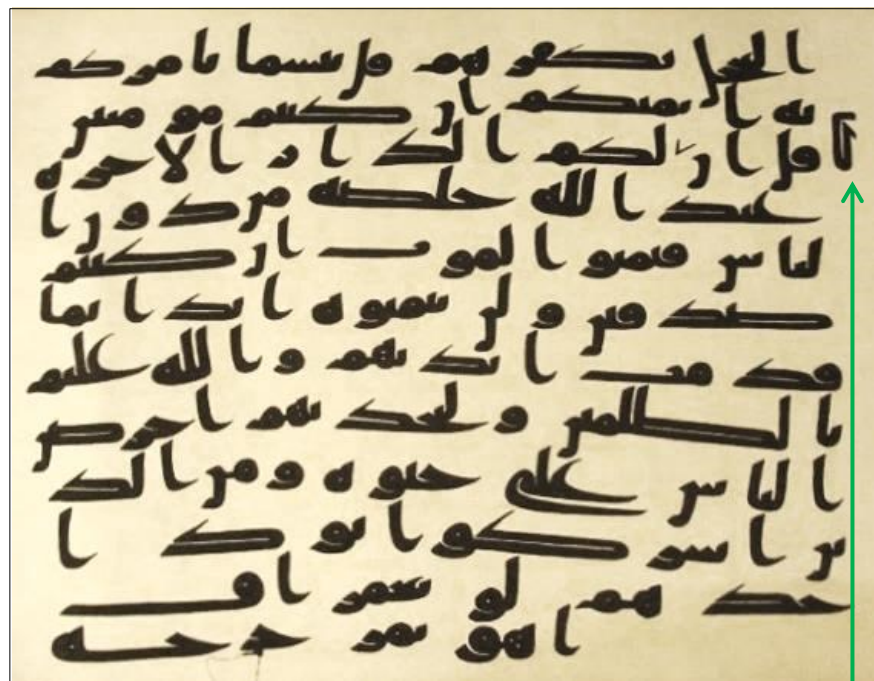 العجل بكفرهم قل بئسما يامركم
به ايمنكم ان كنتم مومنين
قل ان لكم الدار الاخره
عند الله خلصه من دون ا
لناس فتمنوا الموت ان كنتم
صدقين ولن يتمنوه ابدا بما
قدمت ايديهم والله عليم
بالظلمين ولتجدنهم احرص
الناس على حيوه ومن الذ
ين اشركوا يود ا
حدهم لو يعمر
هو بمزحزحه